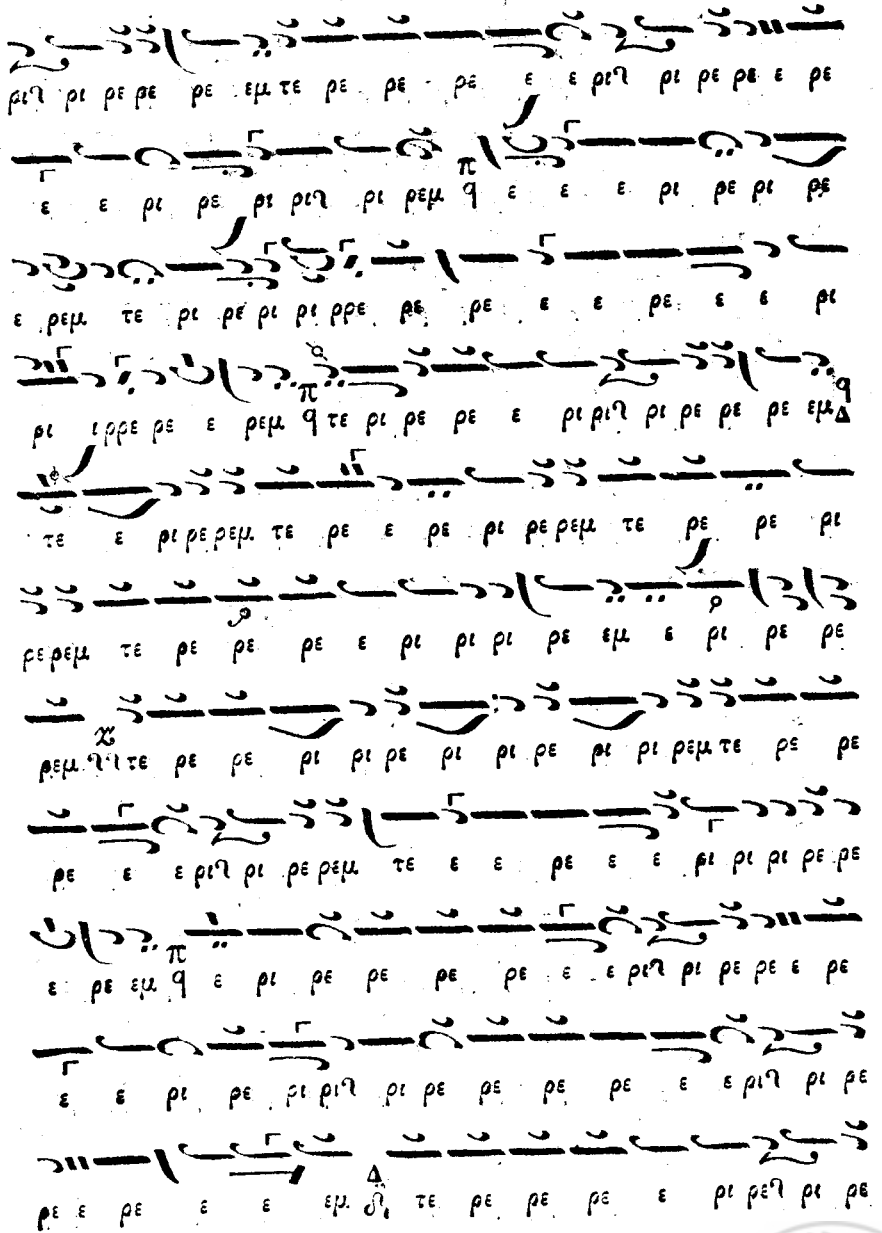 ριϡ ρι ρε ρε ρε εμ τε ρε ρε ρε ε ε ριϡ ρι ρε ρε ε ρε
ε ε ρι ρε ρι ριϡ ρι ρεμ π ϥ ε ε ε ρι ρε ρι ρε
ε ρεμ τε ρι ρε ρι ρι ρρε ρε ρε ε ε ρε ε ε ρι
ρι ι ρρε ρε ε ρεμ π ϥ τε ρι ρε ρε ε ρι ριϡ ρι ρε ρε ρε εμ ϥ Δ
τε ε ρι ρε ρεμ τε ρε ε ρε ρι ρε ρεμ τε ρε ρε ρι
ρε ρεμ τε ρε ρε ρε ε ρι ρι ρι ρε εμ ε ρι ρε ρε
ρεμ τε ρε ρε ρι ρι ρε ρι ρι ρε ρι ρι ρεμ τε ρε ρε
ρε ε ε ριϡ ρι ρε ρεμ τε ε ε ρε ε ε ρι ρι ρι ρε ρε
ε ρε εμ π ϥ ε ρι ρε ρε ρε ρε ε ε ριϡ ρι ρε ρε ε ρε
ε ε ρι ρε ρι ριϡ ρι ρε ρε ρε ρε ε ε ριϡ ρι ρε
ρε ε ρε ε ε εμ Δ τε ρε ρε ρε ε ρι ρεϡ ρι ρε